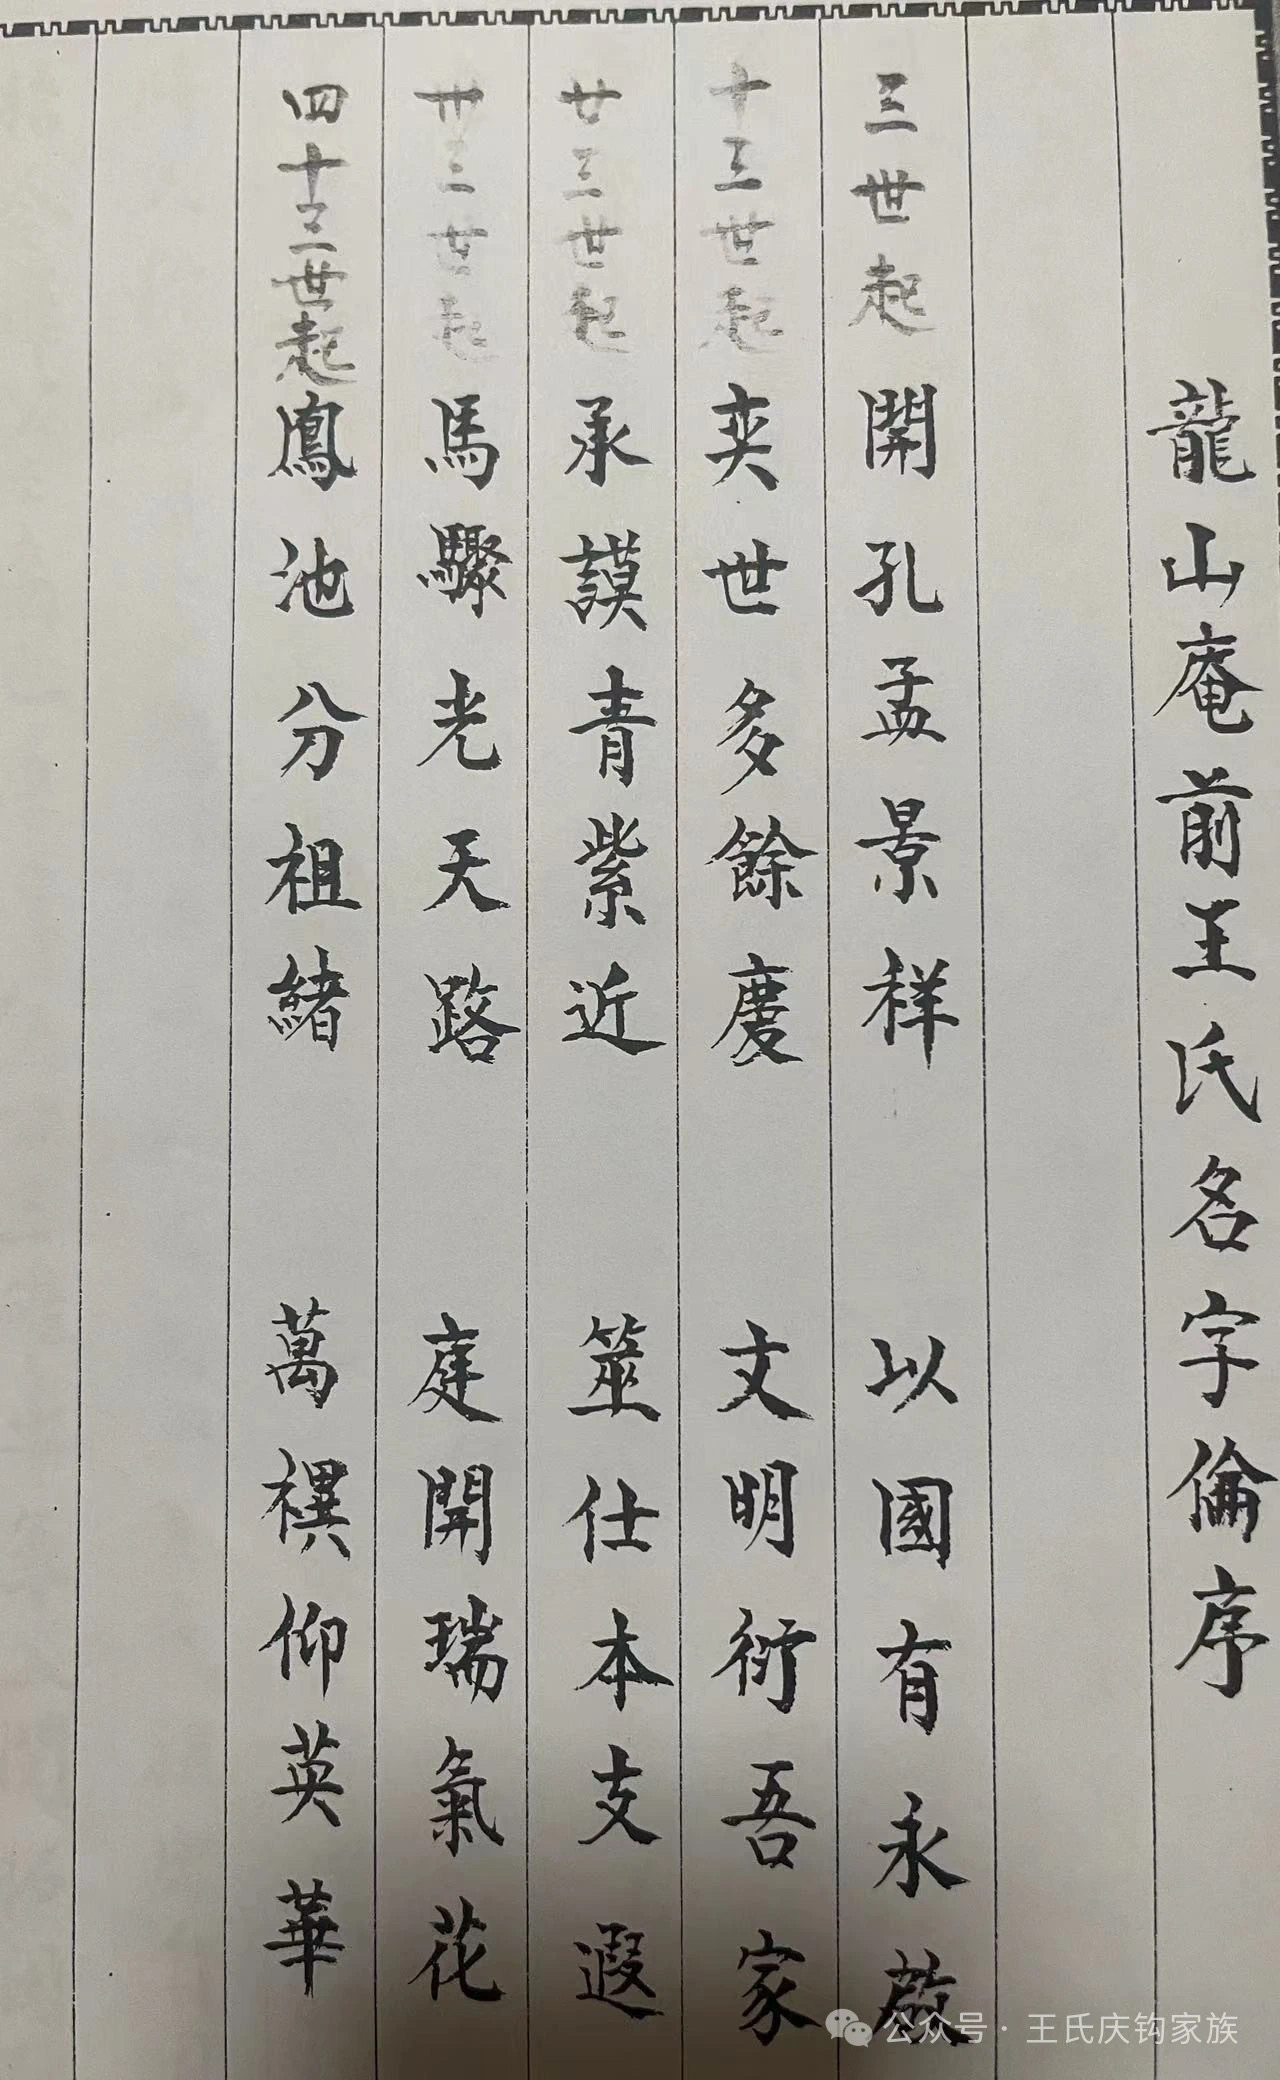 龍山庵前王氏名字倫序
三世起開孔孟景祥 以國有永啟
十三世起奕世多餘慶 文明衍吾家
廿三世起承謨青紫近 筮仕本支遐
卅三世起馬驟光天路 庭開瑞氣花
四十三世起鳳池分祖緒 萬禩仰英華
公众号·王氏庆钩家族